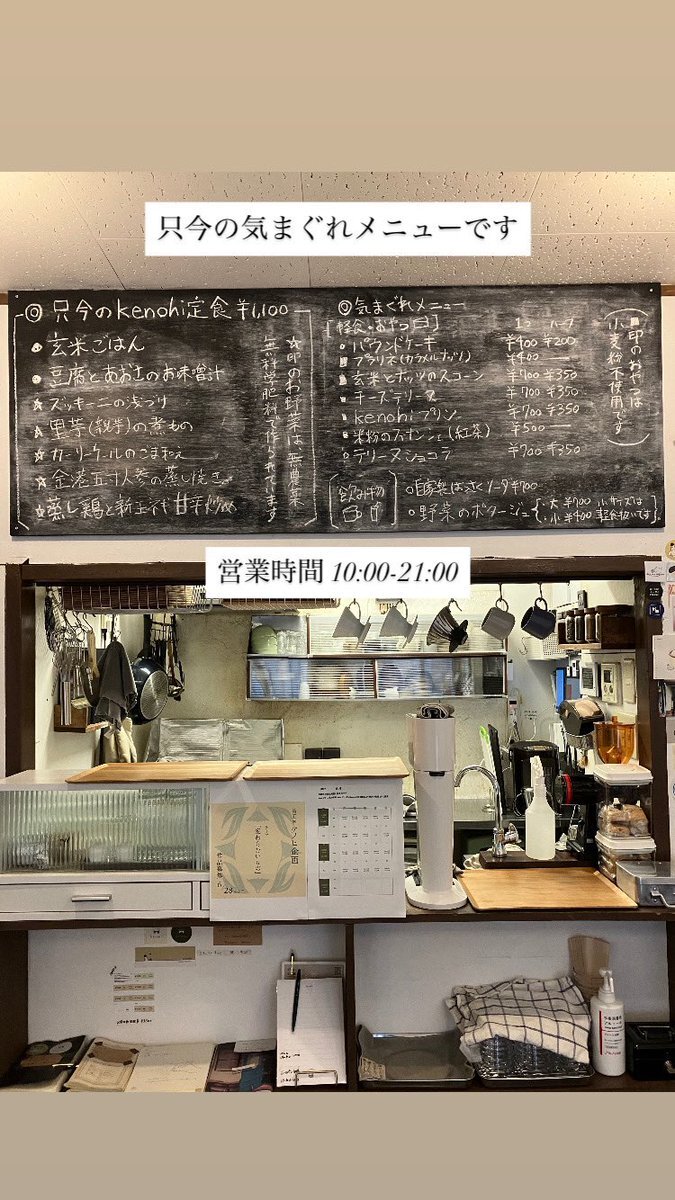 只今の気まぐれメニューです
◎只今のkenohi定食 ¥1,100
・玄米ごはん
・豆腐とあおさのお味噌汁
☆ズッキーニの浅づけ
☆里芋(親芋)の煮もの
☆カーリーケールのごま和え
☆金港五寸人参の蒸し焼き
☆蒸し鶏と新玉ネギ甘辛炒め
☆印のお野菜は無農薬
無科学肥料で作られています
◎気まぐれメニュー
[軽食・おやつ]
1コ ハーフ
パウンドケーキ ¥400 ¥200
フロランタン(カラメルナッツ) ¥400 —
玄米とナッツのスコーン ¥700 ¥350
チーズテリーヌ ¥700 ¥350
kenohiプリン ¥700 ¥350
米粉の (紅茶) ¥500 —
テリーヌショコラ ¥700 ¥350
(■印のおやつは
小麦粉不使用です)
[飲み物]
○自家製はっさくソーダ ¥700
○野菜のポタージュ{・大 ¥700 小サイズは
・小 ¥400 軽食扱いです}
営業時間 10:00-21:00